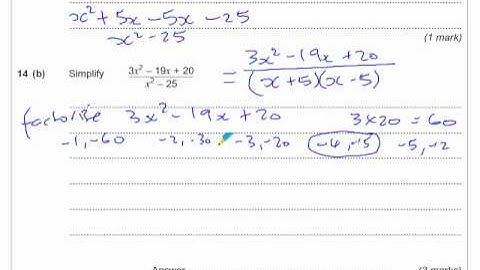 x² + 5x - 5x - 25
x² - 25
(1 mark)
14 (b) Simplify (3x² - 19x + 20)/(x² - 25) = (3x² - 19x + 20)/((x + 5)(x - 5))
factorise 3x² - 19x + 20 3 x 20 = 60
-1, -60 -2, -30 -3, -20 -4, -15 -5, -12
Answer (3 marks)